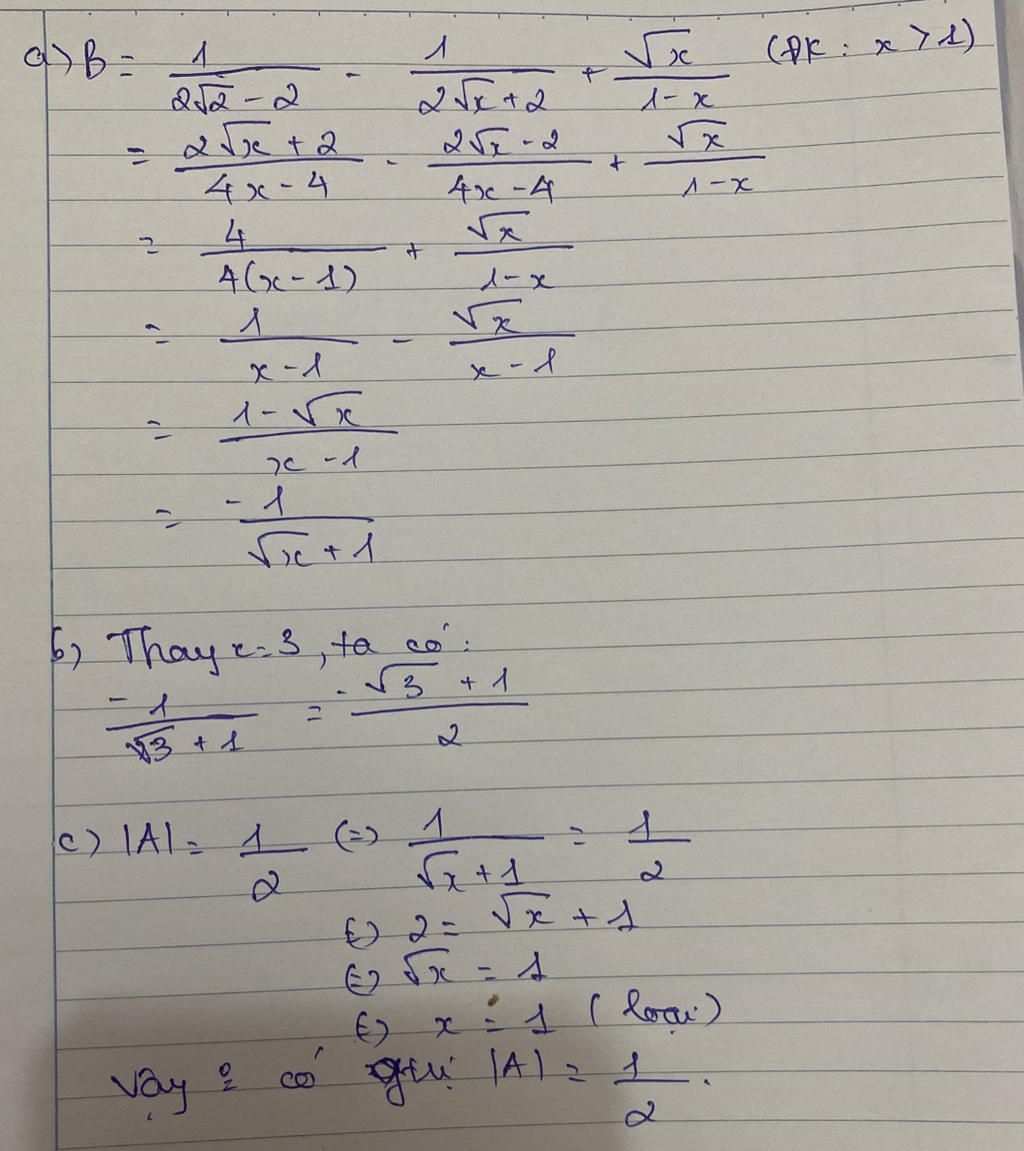 a) B = 1/(2√2 - 2) - 1/(2√x + 2) + √x/(1-x) (ĐK : x > 1)
= (2√x + 2)/(4x - 4) - (2√x - 2)/(4x - 4) + √x/(1-x)
= 4/(4(x-1)) + √x/(1-x)
= 1/(x-1) - √x/(x-1)
= (1-√x)/(x-1)
= -1/(√x + 1)
b) Thay x = 3, ta có:
-1/(√3 + 1) = (-√3 + 1)/2
c) |A| = 1/2 (=) 1/(√x + 1) = 1/2
(=) 2 = √x + 1
(=) √x = 1
(=) x = 1 (loại)
Vậy có |A| = 1/2.